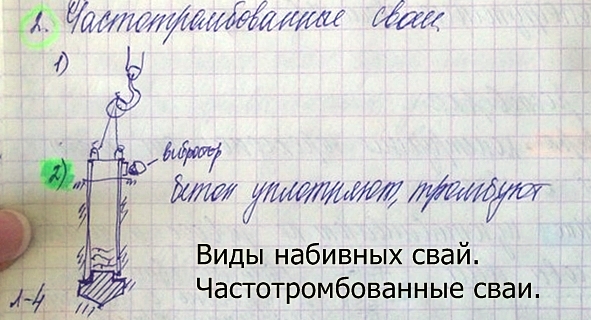 2. Частотромбованные сваи
1)
вибратор
2)
бетон уплотняют, тромбуют
Виды набивных свай.
Частотромбованные сваи.
л-4